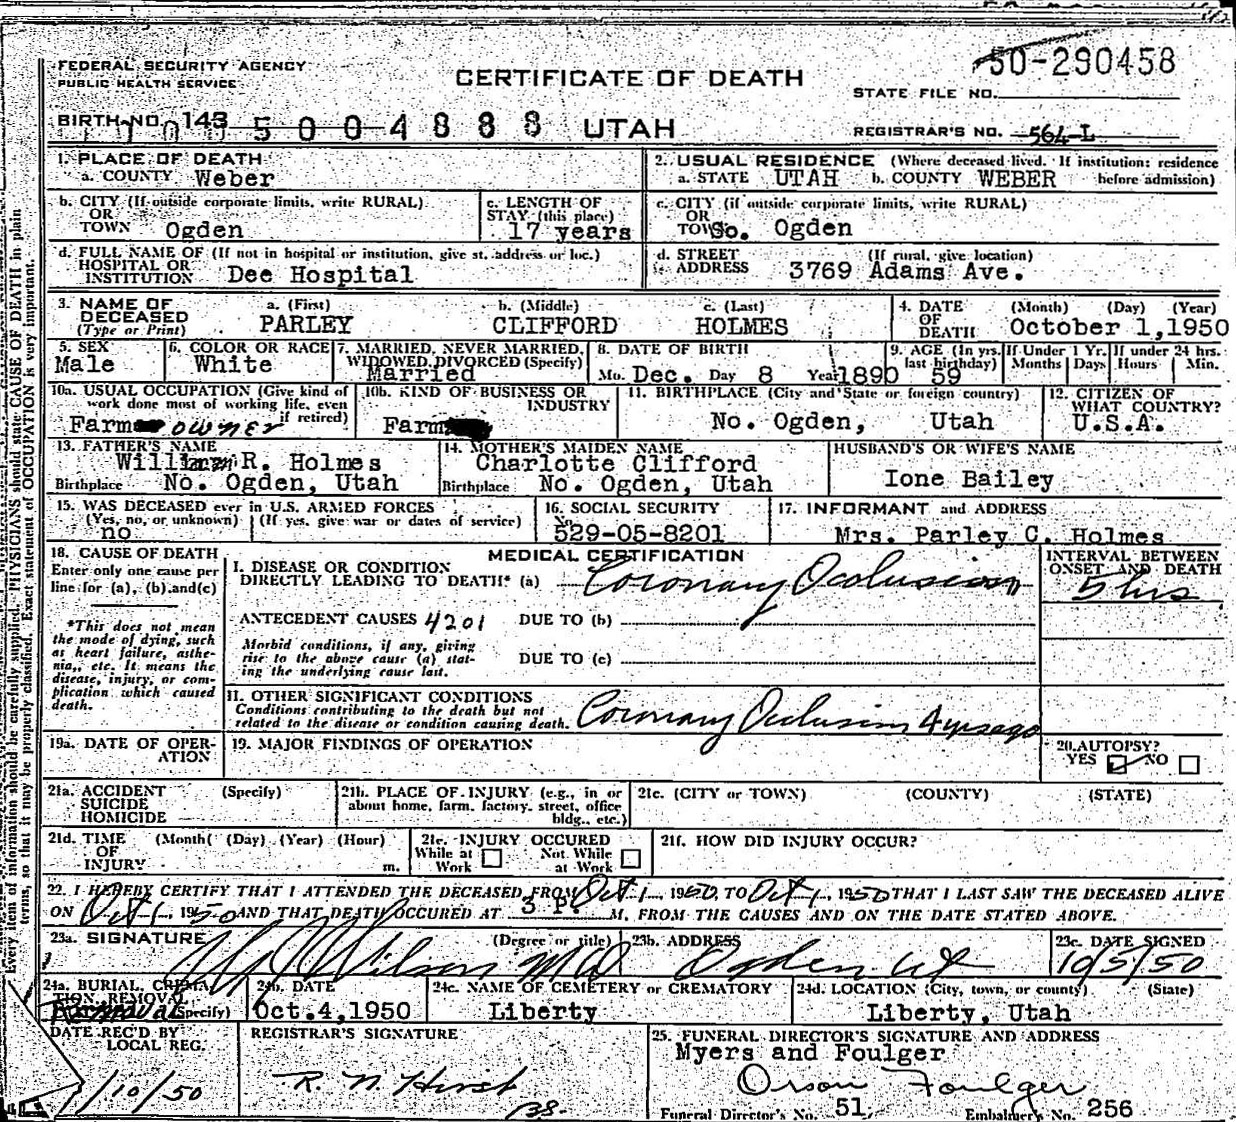 FEDERAL SECURITY AGENCY
PUBLIC HEALTH SERVICE
CERTIFICATE OF DEATH
50-290458
STATE FILE NO.
BIRTH NO. 143 5004888 UTAH
REGISTRAR'S NO. 564-L
1. PLACE OF DEATH
a. COUNTY Weber
2. USUAL RESIDENCE (Where deceased lived. If institution: residence before admission)
a. STATE UTAH b. COUNTY WEBER
b. CITY (If outside corporate limits, write RURAL)
OR
TOWN Ogden
c. LENGTH OF STAY (this place)
17 years
c. CITY (if outside corporate limits, write RURAL)
OR
TOWN So. Ogden
d. FULL NAME OF (If not in hospital or institution, give st. address or loc.)
HOSPITAL OR
INSTITUTION Dee Hospital
d. STREET (If rural, give location)
ADDRESS 3769 Adams Ave.
3. NAME OF DECEASED
(Type or Print)
a. (First) b. (Middle) c. (Last)
PARLEY CLIFFORD HOLMES
4. DATE OF DEATH (Month) (Day) (Year)
October 1,1950
5. SEX
Male
6. COLOR OR RACE
White
7. MARRIED, NEVER MARRIED, WIDOWED, DIVORCED (Specify)
Married
8. DATE OF BIRTH
Mo. Dec. Day 8 Year 1890
9. AGE (In yrs. last birthday)
59
If Under 1 Yr. Months Days
If under 24 hrs. Hours Min.
10a. USUAL OCCUPATION (Give kind of work done most of working life, even if retired)
Farm owner
10b. KIND OF BUSINESS OR INDUSTRY
Farm
11. BIRTHPLACE (City and State or foreign country)
No. Ogden, Utah
12. CITIZEN OF WHAT COUNTRY?
U.S.A.
13. FATHER'S NAME
William R. Holmes
Birthplace No. Ogden, Utah
14. MOTHER'S MAIDEN NAME
Charlotte Clifford
Birthplace No. Ogden, Utah
HUSBAND'S OR WIFE'S NAME
Ione Bailey
15. WAS DECEASED ever in U.S. ARMED FORCES
(Yes, no, or unknown) (If yes, give war or dates of service)
no
16. SOCIAL SECURITY No.
529-05-8201
17. INFORMANT and ADDRESS
Mrs. Parley C. Holmes
18. CAUSE OF DEATH
Enter only one cause per line for (a), (b) and (c)
*This does not mean the mode of dying, such as heart failure, asthenia, etc. It means the disease, injury, or complication which caused death.
MEDICAL CERTIFICATION
I. DISEASE OR CONDITION
DIRECTLY LEADING TO DEATH* (a) Coronary Occlusion
INTERVAL BETWEEN ONSET AND DEATH
5 hrs
ANTECEDENT CAUSES 4201 DUE TO (b)
Morbid conditions, if any, giving rise to the above cause (a) stating the underlying cause last.
DUE TO (c)
II. OTHER SIGNIFICANT CONDITIONS
Conditions contributing to the death but not related to the disease or condition causing death. Coronary Occlusion 4 yrs ago
19a. DATE OF OPERATION
19. MAJOR FINDINGS OF OPERATION
20. AUTOPSY?
YES NO
21a. ACCIDENT (Specify)
SUICIDE
HOMICIDE
21b. PLACE OF INJURY (e.g., in or about home, farm, factory, street, office bldg., etc.)
21c. (CITY or TOWN) (COUNTY) (STATE)
21d. TIME (Month) (Day) (Year) (Hour)
OF
INJURY m.
21e. INJURY OCCURED
While at Work Not While at Work
21f. HOW DID INJURY OCCUR?
22. I HEREBY CERTIFY THAT I ATTENDED THE DECEASED FROM Oct 1, 1950, TO Oct 1, 1950 THAT I LAST SAW THE DECEASED ALIVE
ON Oct 1, 1950 AND THAT DEATH OCCURED AT 3 P. M, FROM THE CAUSES AND ON THE DATE STATED ABOVE.
23a. SIGNATURE (Degree or title)
Wilson MD
23b. ADDRESS
Ogden Ut
23c. DATE SIGNED
10/5/50
24a. BURIAL, CREMATION, REMOVAL (Specify)
Removal
24b. DATE
Oct.4,1950
24c. NAME OF CEMETERY or CREMATORY
Liberty
24d. LOCATION (City, town, or county) (State)
Liberty, Utah
DATE REC'D BY LOCAL REG.
/10/50
REGISTRAR'S SIGNATURE
R. N. Hirst
25. FUNERAL DIRECTOR'S SIGNATURE AND ADDRESS
Myers and Foulger
Orson Foulger
Funeral Director's No. 51 Embalmer's No. 256
Every item of information should be carefully supplied. PHYSICIANS should state CAUSE OF DEATH in plain
terms, so that it may be properly classified. Exact statement of OCCUPATION is very important.